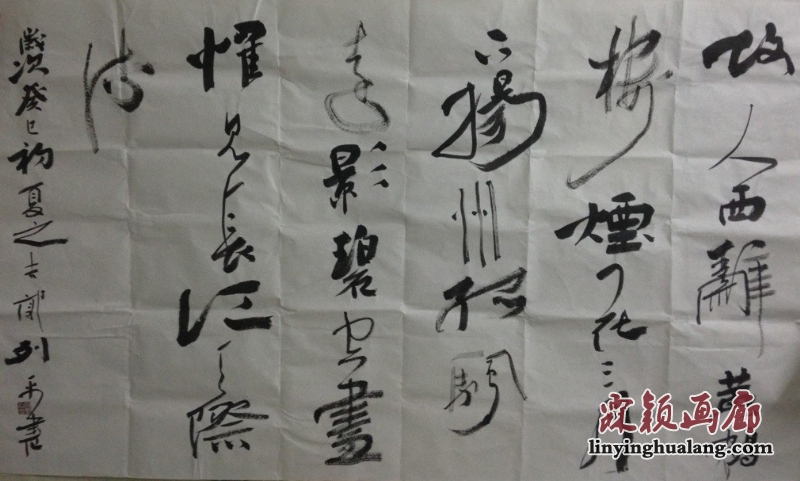 故人西辭黃鶴
樓煙花三月
下揚州孤帆
遠影碧空盡
惟見長江天際
流
歲次癸巳初夏之吉 列 書
霖颖画廊
linyinghualang.com